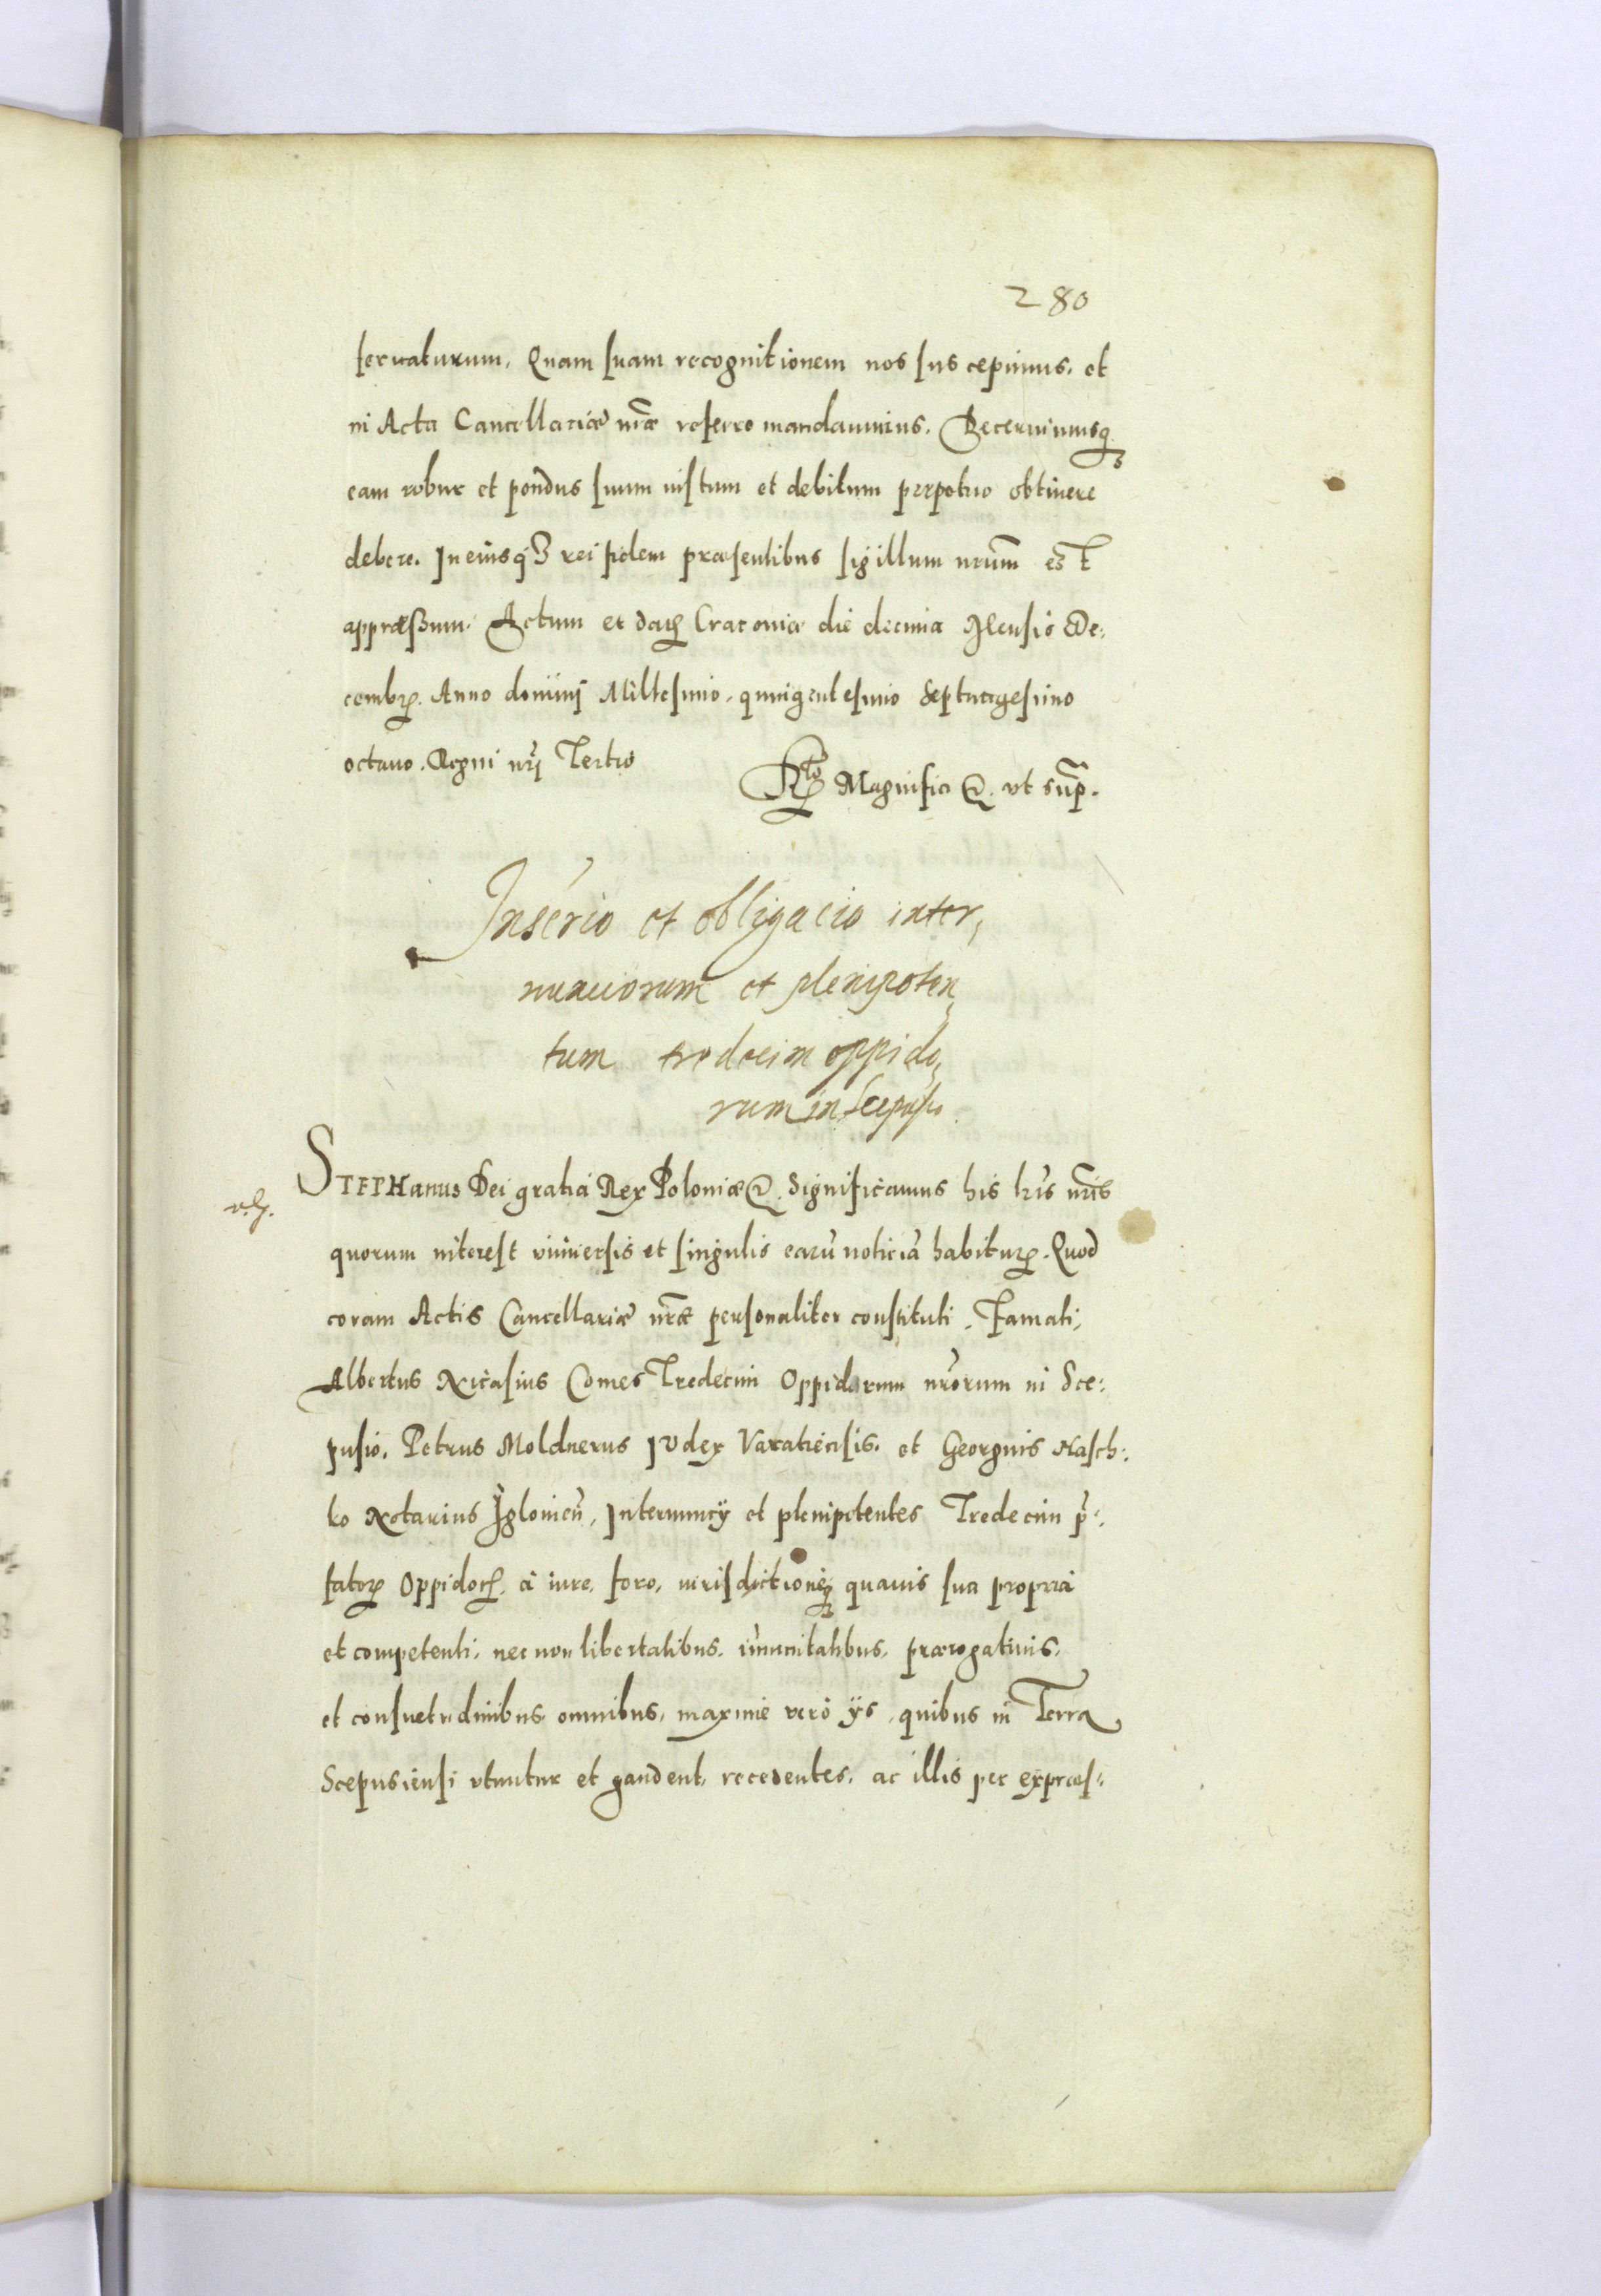 280
seruaturum. Quam suam recognitionem nos suscepimus. et
in Acta Cancellariæ nr̃æ referre mandauimus. Decernimusq₃
eam robur et pondus suum iustum et debitum perpetuo obtinere
debere. In eiusq₃ rei fidem præsentibus sigillum nr̃um est
appræssum. Actum et datꝫ Cracouiæ die decima Mensis De:
cembrꝫ. Anno domini Millesimo. quingentesimo Septuagesimo
octauo. Regni nr̃i Tertio
Rto Magnifici &. vt sup̃.
Inserio et obligacio inter,
nunciorum et plenipoten,
tum tredecim oppido,
rum in Scepusio.
STEPHanus Dei gratia Rex Poloniæ &. Significamus his lr̃is nr̃is
quorum interest vniuersis et singulis earũ noticiã habiturꝫ. Quod
coram Actis Cancellariæ nr̃æ personaliter constituti. Famati,
Albertus Nicasius Comes Tredecim Oppidorum nr̃orum in Sce:
pusio. Petrus Moldnerus Iudex Varaliensis. et Georgius Hasch:
ko Notarius Iglouien̄, Internuncij et plenipotentes Tredecim p̃:
fatorꝫ Oppidorꝫ. à iure, foro, iurisdictioneq₃ quauis sua propria
et competenti, nec non libertatibus. im̃unitatibus, prærogatiuis,
et consuetudinibus omnibus, maxime verò ijs, quibus in Terra
Scepusiensi vtuntur et gaudent, recedentes, ac illis per expræs: